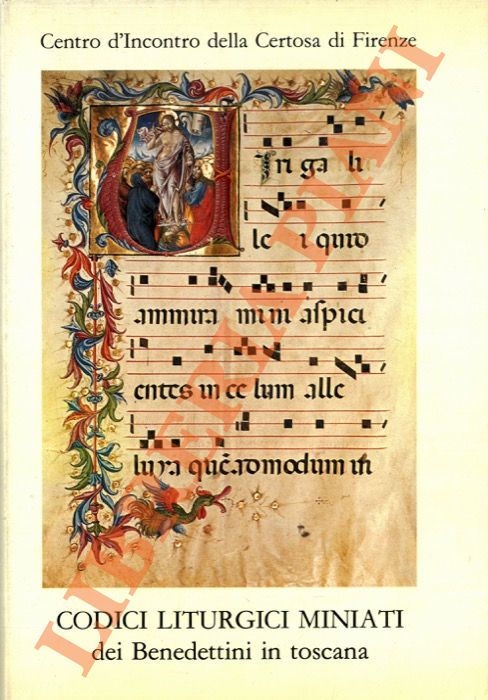 Centro d'Incontro della Certosa di Firenze
Viri gali
le i quid
ammira mini aspici
entes in ce lum alle
luya que᷄admodum iſti
CODICI LITURGICI MINIATI
dei Benedettini in toscana
LIBRERIA PIANI